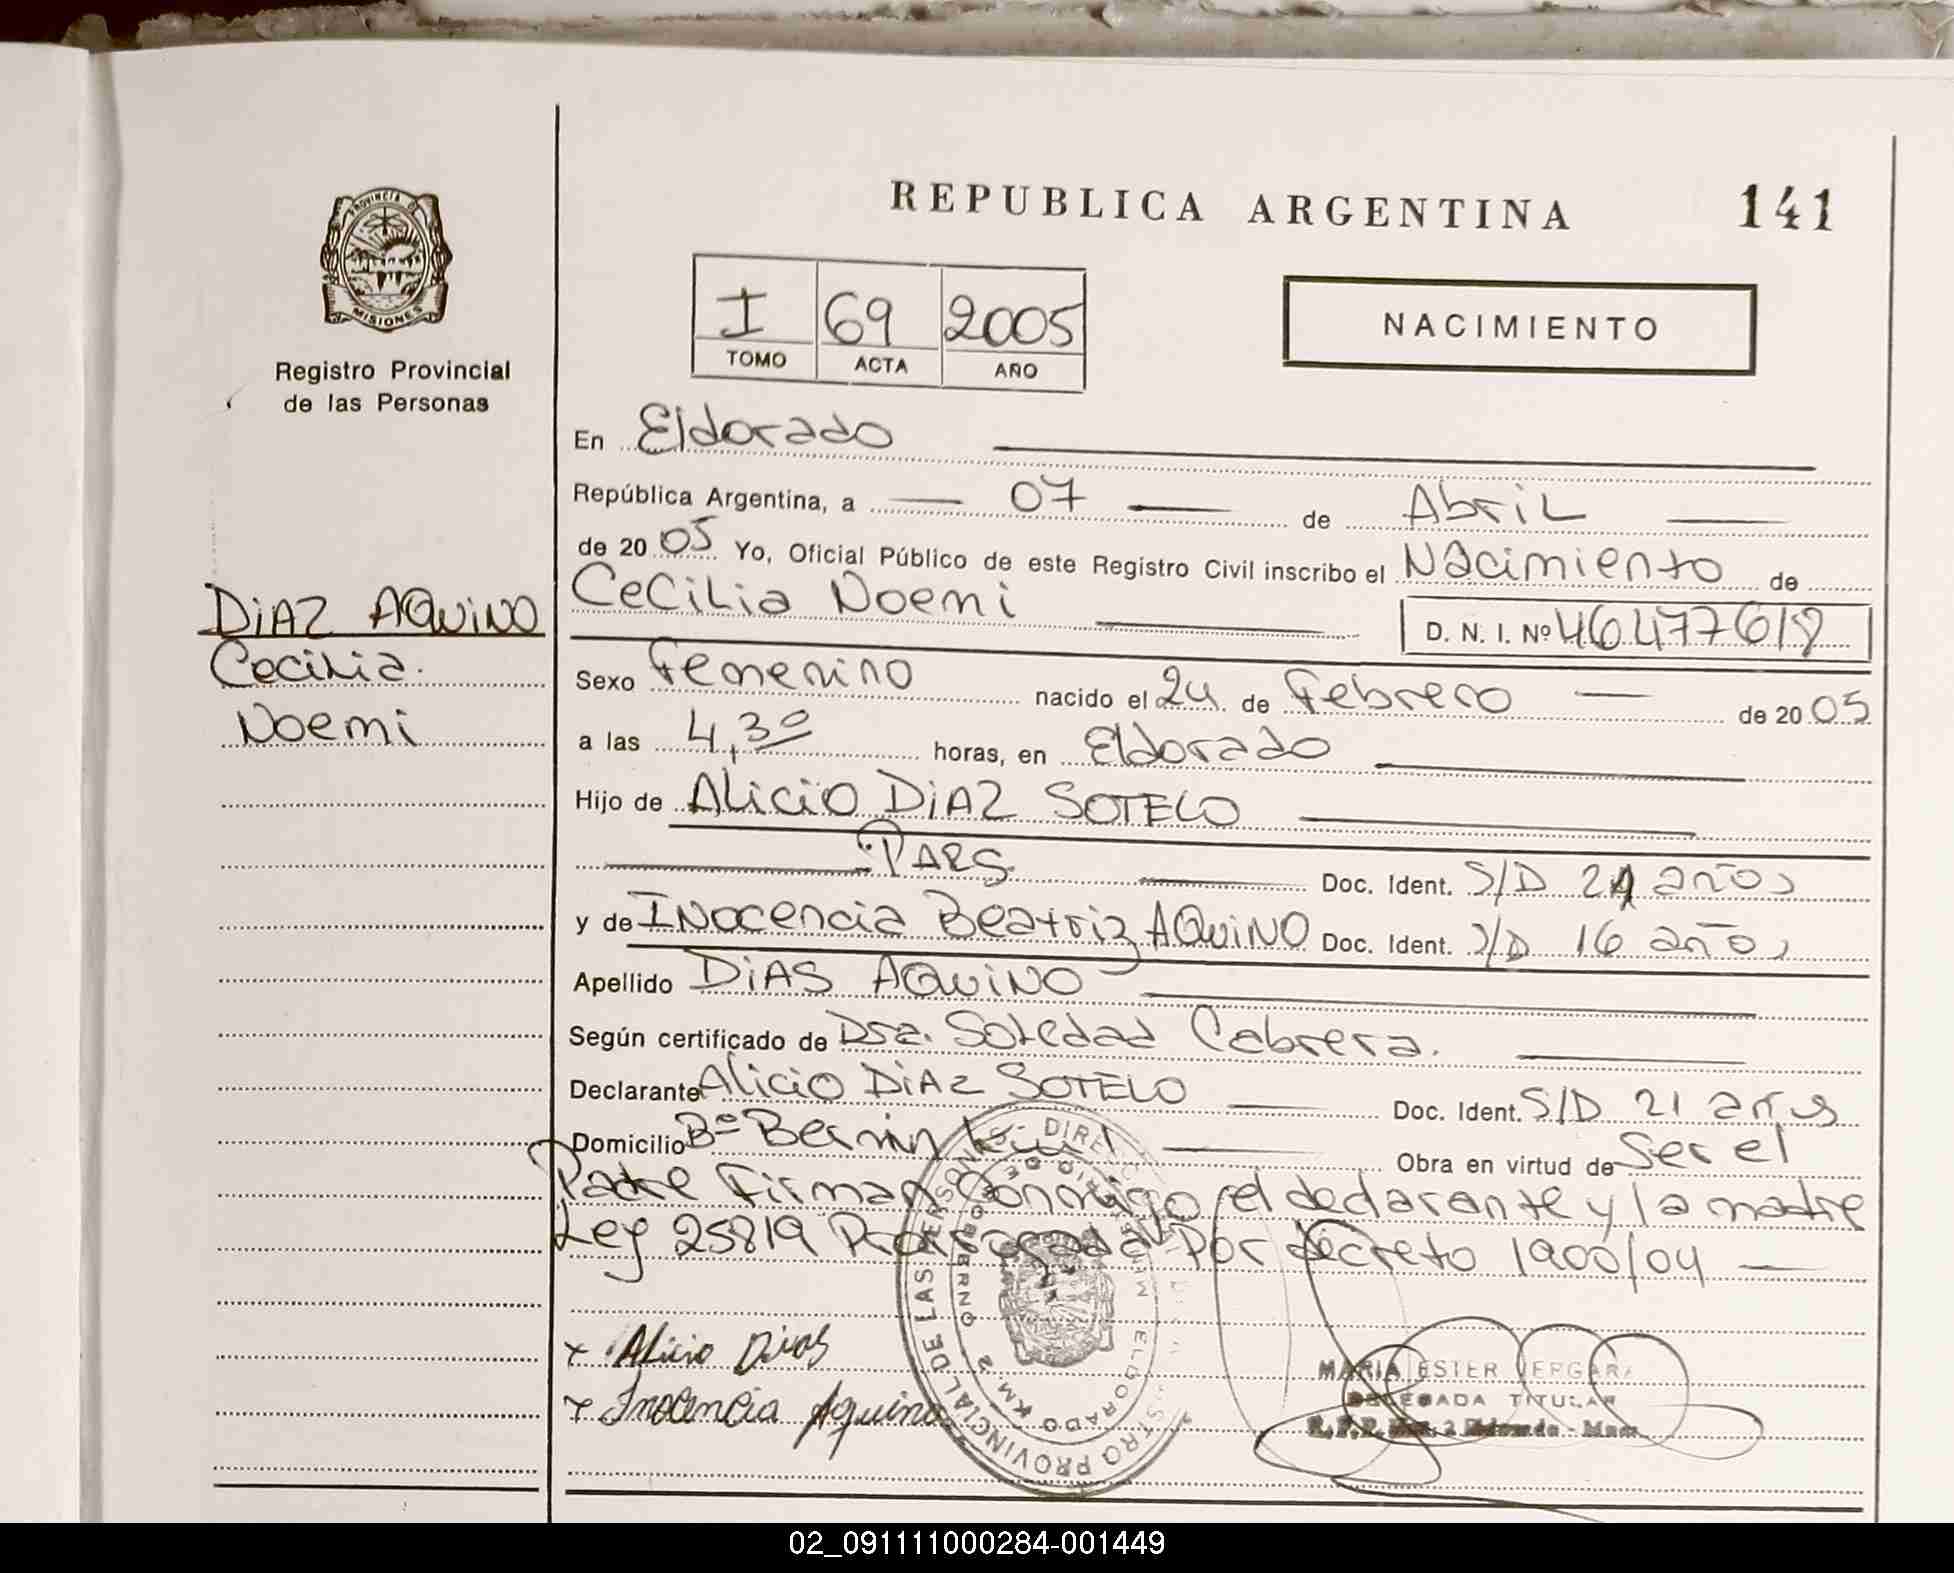 REPUBLICA ARGENTINA 141
PROVINCIA DE
MISIONES
Registro Provincial
de las Personas
I 69 2005
TOMO ACTA AÑO
NACIMIENTO
En Eldorado
República Argentina, a 07 de Abril
de 2005 Yo, Oficial Público de este Registro Civil inscribo el Nacimiento de
DIAZ AQUINO
Cecilia.
Noemi
Cecilia Noemi D. N. I. Nº
Sexo Femenino nacido el 24 de Febrero de 2005
a las 4,30 horas, en Eldorado
Hijo de Alicio DIAZ SOTELO
Doc. Ident. S/D 21 años
y de Inocencia Beatriz AQUINO Doc. Ident. S/D 16 años
Apellido DIAS AQUINO
Según certificado de Dra. Soledad Cabrera.
Declarante Alicio DIAZ SOTELO Doc. Ident. S/D 21 años
Domicilio Bº Obra en virtud de Ser el
Padre Firman Conmigo el declarante y la madre
Ley 25819 Prorrogada Por decreto 1900/04
x Alicio Dias
x Inocencia Aquino
MARIA ESTER VERGARA
DELEGADA TITULAR
02_091111000284-001449